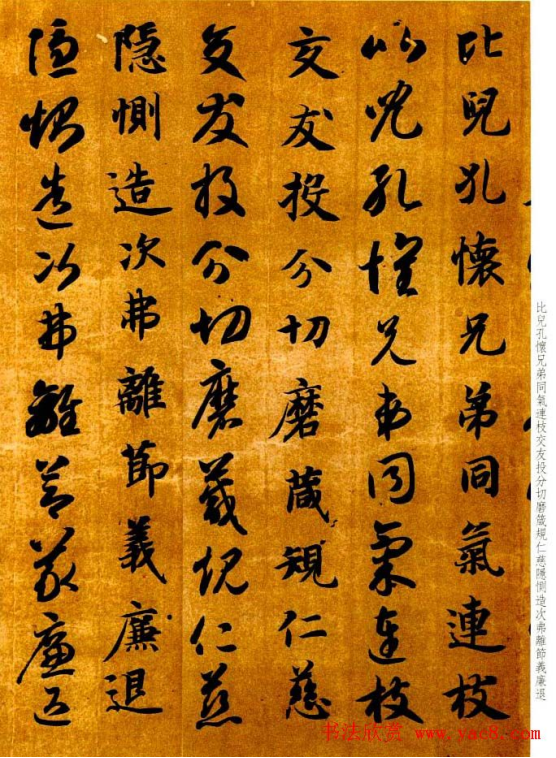 比兒孔懷兄弟同氣連枝交友投分切磨箴規仁慈隱惻造次弗離節義廉退
比兒孔懷兄弟同氣連枝
比兒孔懷兄弟同氣連枝
交友投分切磨箴規仁慈
交友投分切磨箴規仁慈
隱惻造次弗離節義廉退
隱惻造次弗離節義廉退
书法欣赏 www.yac8.com